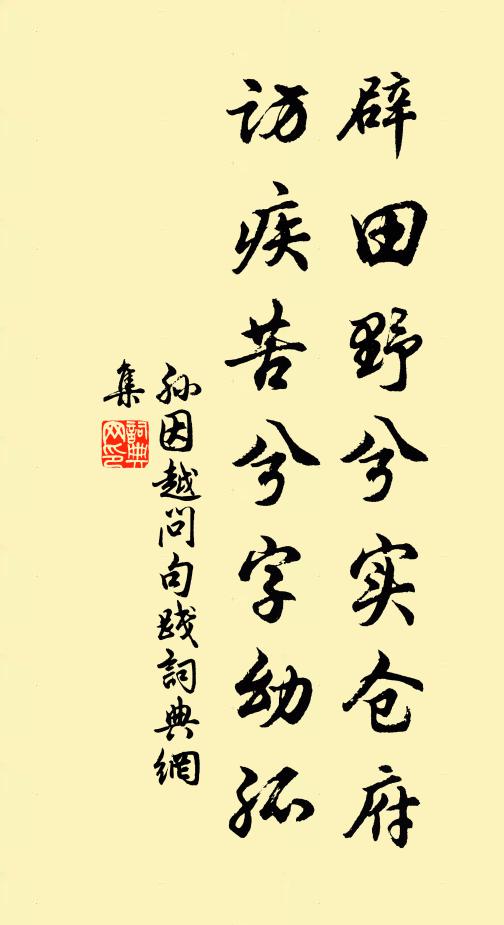 辟田野兮实仓府
访疾苦兮字幼孤
孙因越问句践詞典網
集
詞典網印